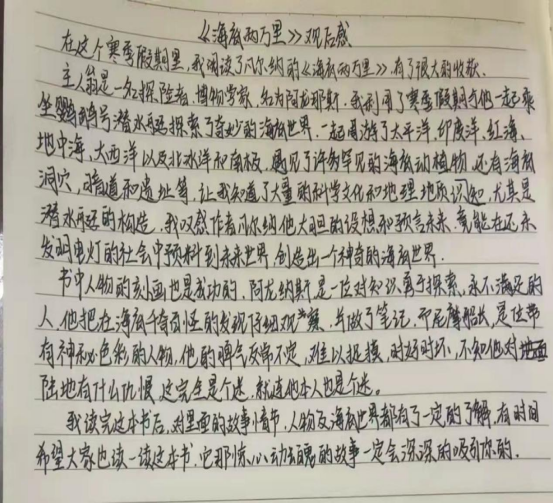 《海底两万里》观后感
在这个寒季假期里,我阅读了凡尔纳的《海底两万里》,有了很大的收获.
主人翁是一名探险者,博物学家,名为阿龙那斯.我利用了寒季假期与他一起乘
坐鹦鹉号潜水艇探索了奇妙的海底世界.一起周游了太平洋,印度洋,红海、
地中海,大西洋以及北冰洋和南极,遇见了许多罕见的海底动植物,还有海底
洞穴,暗道和遗址等,让我知道了大量的科学文化和地理地质识知,尤其是
潜水艇的构造,我叹感作者凡尔纳他大胆的设想和预言未来,竟能在还未
发明电灯的社会中预料到未来世界,创造出一个神奇的海底世界.
书中人物的刻画也是成功的,阿龙纳斯是一位对知识勇于探索,永不满足的
人,他把在海底千奇百怪的发现仔细观察,并做了笔记,而尼摩船长,是位带
有神秘色彩的人物,他的脾气反常不定,难以捉摸,时好时坏,不知他对
陆地有什么仇恨,这完全是个迷,就连他本人也是个迷。
我读完这本书后,对里面的故事情节,人物及海底世界都有了一定的了解,有时间
希望大家也读一读这本书,它那惊心动魄的故事一定会深深的吸引你的.